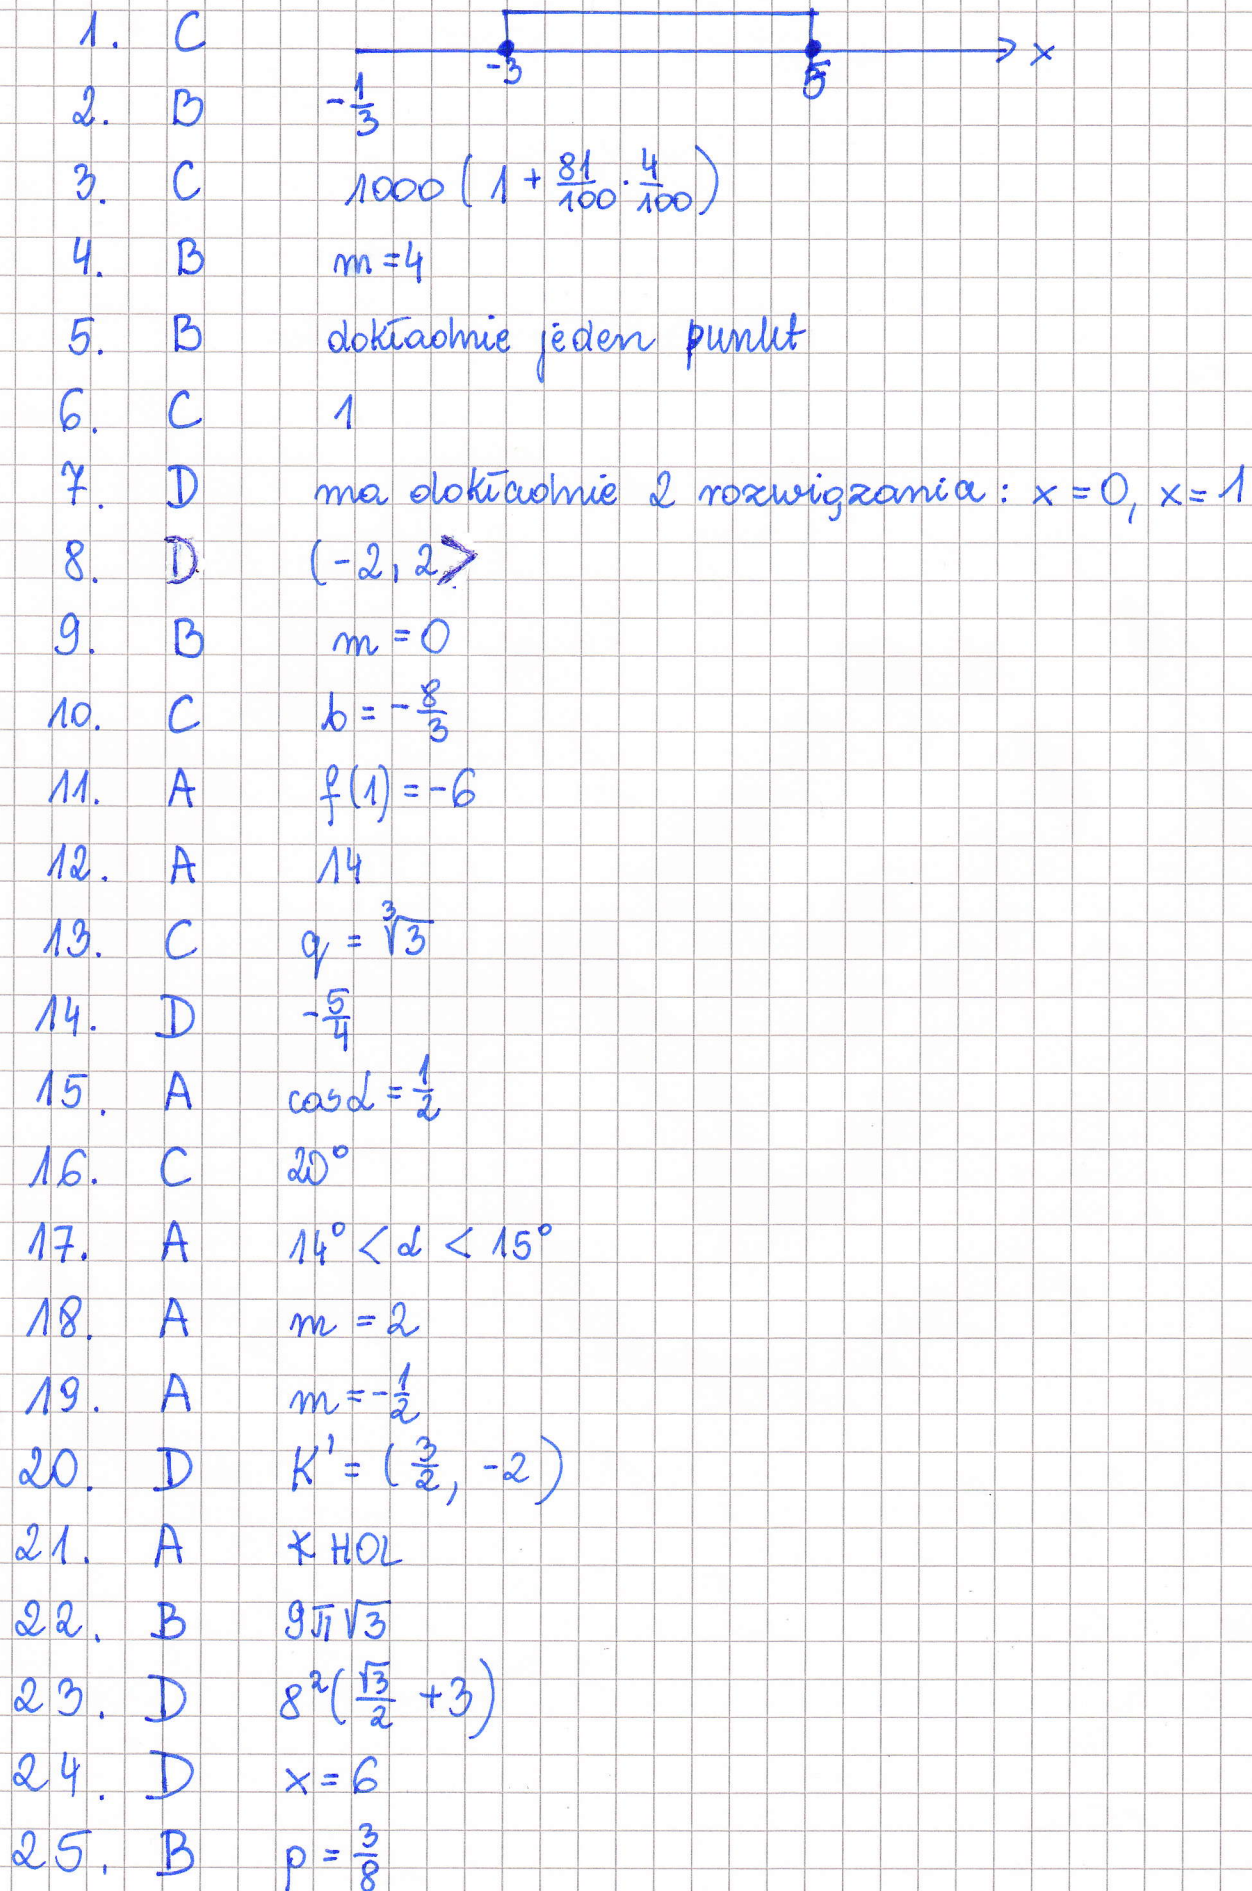 1. C -3 5 x
2. B -1/3
3. C 1000 (1 + 81/100 · 4/100)
4. B m = 4
5. B dokładnie jeden punkt
6. C 1
7. D ma dokładnie 2 rozwiązania: x = 0, x = 1
8. D (-2, 2>
9. B m = 0
10. C b = -8/3
11. A f(1) = -6
12. A 14
13. C q = ∛3
14. D -5/4
15. A cos α = 1/2
16. C 20°
17. A 14° < α < 15°
18. A m = 2
19. A m = -1/2
20. D K' = (3/2, -2)
21. A ∢ HOL
22. B 9π√3
23. D 8²(√3/2 + 3)
24. D x = 6
25. B p = 3/8